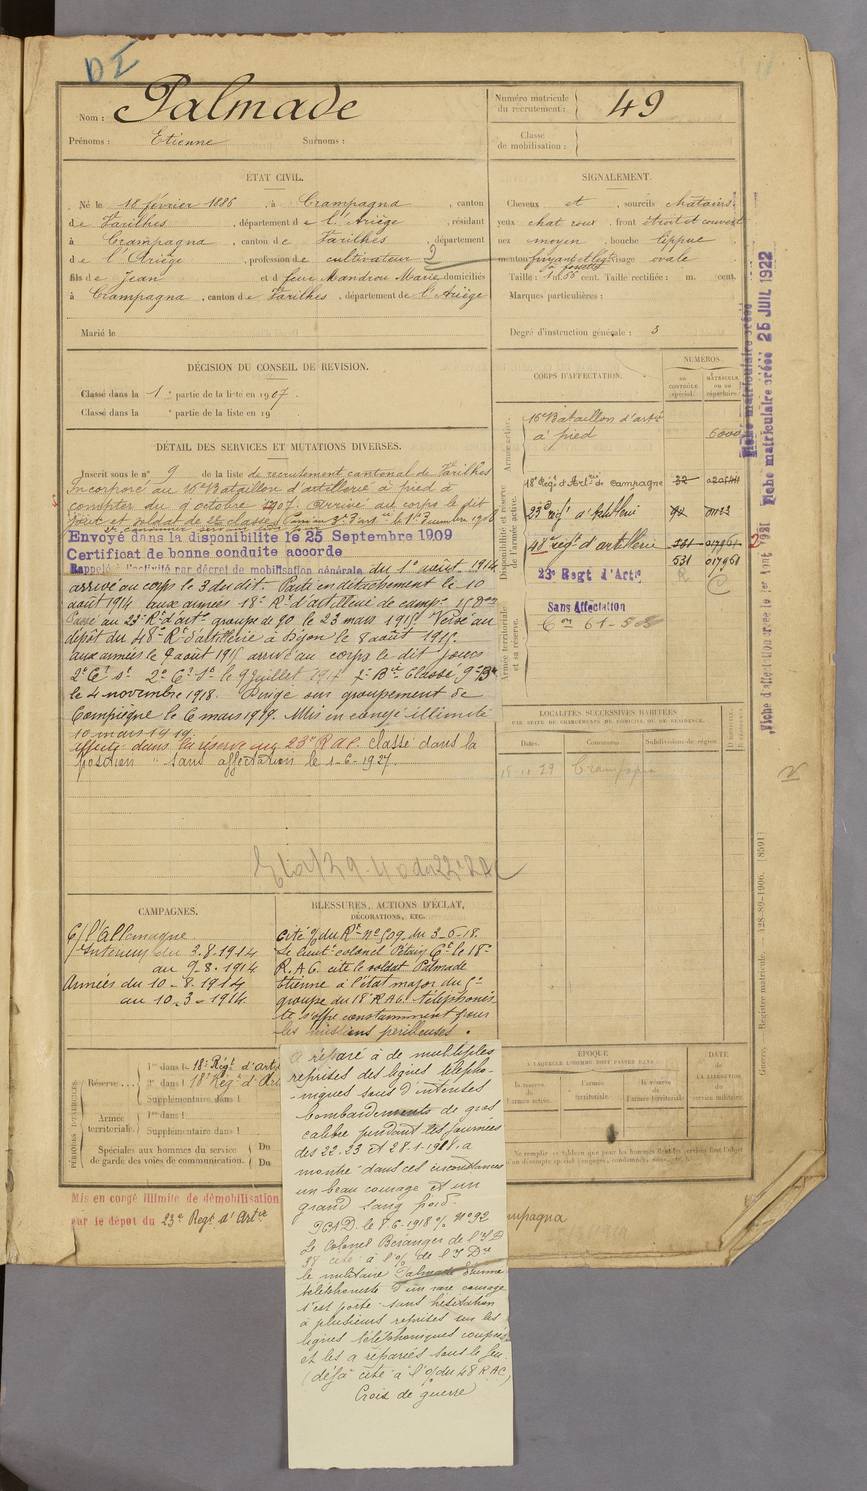 DI
Nom : Palmade
Prénoms : Etienne Surnoms :
Numéro matricule du recrutement : 49
Classe de mobilisation :
ÉTAT CIVIL.
Né le 18 février 1886, à Crampagna, canton
de Varilhes, département de l'Ariège, résidant
à Crampagna, canton de Varilhes département
de l'Ariège, profession de cultivateur
fils de Jean et d feue Mandrou Marie domiciliés
à Crampagna, canton de Varilhes, département de l'Ariège
Marié le
SIGNALEMENT.
Cheveux et, sourcils chatains.
yeux chat roux, front étroit et couvert
nez moyen, bouche lippue
menton fuyant et légt visage ovale
à fossette
Taille : 1 m. 55 cent. Taille rectifiée : m. cent.
Marques particulières :
Degré d'instruction générale : 3
DÉCISION DU CONSEIL DE REVISION.
Classé dans la 1e partie de la liste en 1907.
Classé dans la e partie de la liste en 19
DÉTAIL DES SERVICES ET MUTATIONS DIVERSES.
Inscrit sous le n° 9 de la liste de recrutement cantonal de Varilhes
Incorporé au 16e Bataillon d'artillerie à pied à
compter du 9 octobre 1907. Arrivé au corps le dit
jour et soldat de 2e classe
Envoyé dans la disponibilité le 25 Septembre 1909
Certificat de bonne conduite accordé
Rappelé à l'activité par décret de mobilisation générale du 1er août 1914
arrivé au corps le 3 du dit. Parti en détachement le 10
août 1914 aux armées 18e Rt d'artillerie de campe
Passé au 23e Rt d'arte groupe de 90 le 23 mars 1915. Versé au
dépôt du 48e Rt d'artillerie à Dijon le 8 août 1915.
aux armées le 9 août 1915 arrivé au corps le dit jour
le 4 novembre 1918. Dirigé sur groupement de
Compiègne le 6 mars 1919. Mis en congé illimité
10 mars 1919.
affecté dans la réserve au 23e R.A.C. classé dans la
position "sans affectation le 1-6-1927.
CORPS D'AFFECTATION.
NUMÉROS
AU CONTRÔLE spécial.
MATRICULE ou au répertoire.
Armée active.
16e Bataillon d'artie
à pied 6000
Disponibilité et réserve de l'armée active.
18e Régt d'Artrie de campagne 32
23e régt d'artillerie
48e régt d'artillerie 531 017961
23e Regt d'Artie 531 017961
Armée territoriale et sa réserve.
Sans Affectation
LOCALITÉS SUCCESSIVES HABITÉES
PAR SUITE DE CHANGEMENTS DE DOMICILE OU DE RÉSIDENCE.
Dates. Communes. Subdivisions de région.
Crampagna
CAMPAGNES.
C/ l'allemagne
Intérieur du 3.8.1914
au 9-8-1914
Armées du 10-8-1914
au 10.3-1914
BLESSURES, ACTIONS D'ÉCLAT,
DÉCORATIONS, ETC.
Cité % du Rt n° 509 du 3-6-18.
Le lieutt colonel Pétain Ct le 18e
R.A.C. cite le soldat Palmade
Etienne à l'état major du
groupe du 18e R.A.C. téléphonis
te s'offre constamment pour
les missions périlleuses.
a réparé à de multiples
reprises des lignes télépho-
-niques sous d'intenses
bombardements de gros
calibre pendant les journées
des 22.23 et 28.1.1918. a
montré dans ces circonstances
un beau courage et un
grand sang froid.
le 8.6.1918 % n° 92
Le Colonel Béranger de l'I D
38 cite à l'% de l'I Dre
le militaire Palmade Etienne
téléphoniste d'un rare courage
s'est porté sans hésitation
à plusieurs reprises sur les
lignes téléphoniques coupées
et les a réparées sous le feu.
(déjà cité à l'% du 48 R.A.C)
Croix de guerre
PÉRIODES D'EXERCICES.
Réserve... 1re dans le 18e Régt d'arti
2e dans l 18e Régt d'Art
Supplémentaire dans l
Armée territoriale. 1re dans l
Supplémentaire dans l
Spéciales aux hommes du service de garde des voies de communication. Du
Du
ÉPOQUE
À LAQUELLE L'HOMME DOIT PASSER DANS
la réserve de l'armée active. l'armée territoriale. la réserve de l'armée territoriale.
DATE DE LA LIBÉRATION du service militaire
Mis en congé illimité de démobilisation
par le dépôt du 23e Regt d'Artie
mpagna
Fiche matriculaire créée
Fiche matriculaire créée 25 JUIL 1922
Fiche d'affectation créée le 1er Août 1921
Guerre. Registre matricule. 428-89-1906. [8591]